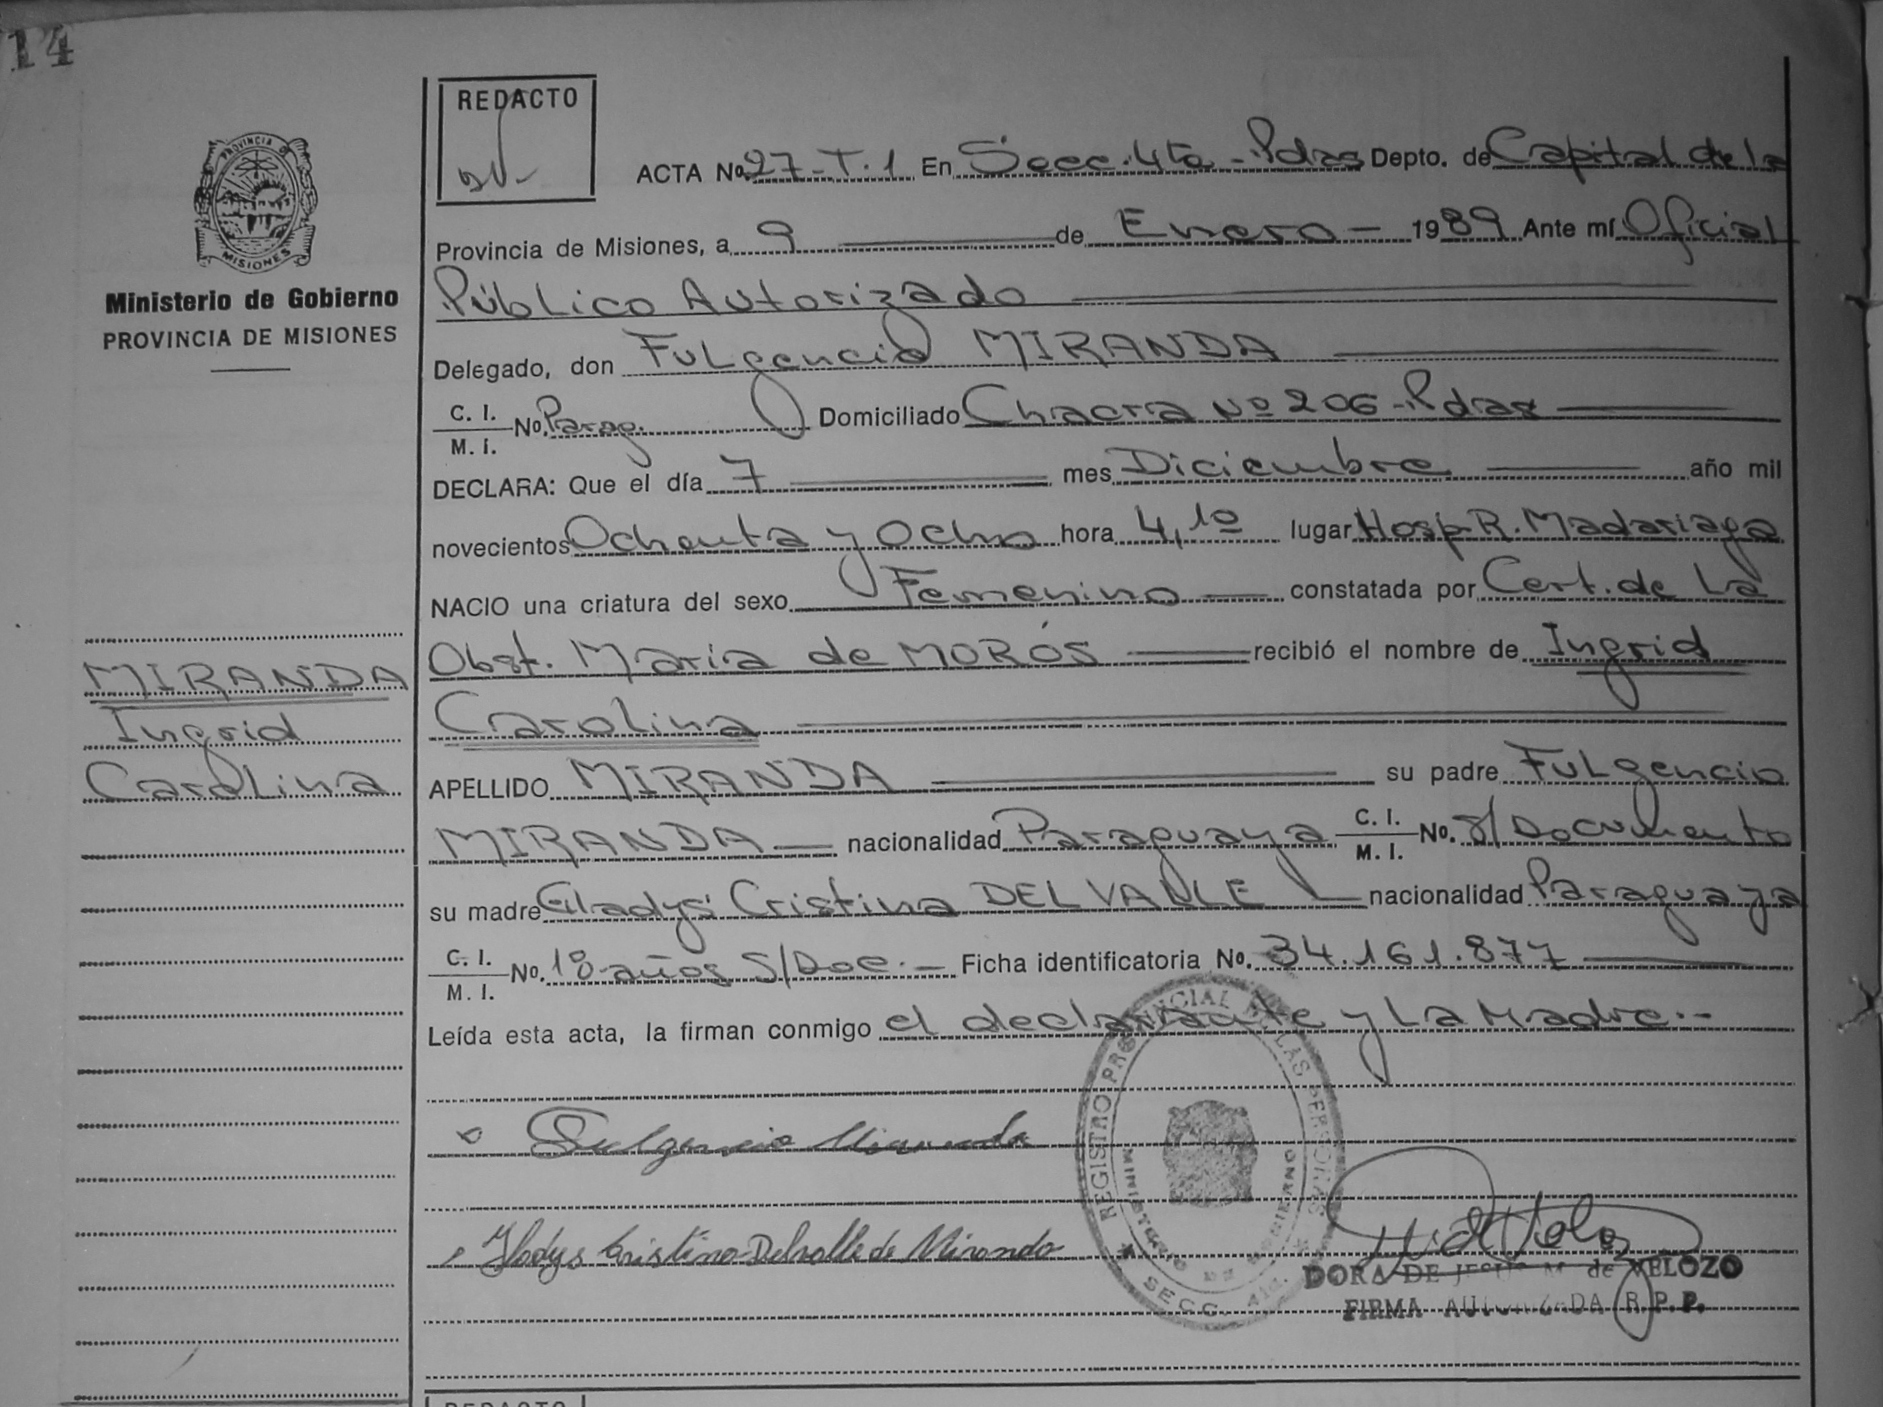 14
REDACTO
ACTA No. 27-T.1 En Secc. 4ta - Pdas Depto. de Capital de la
PROVINCIA DE
MISIONES
Ministerio de Gobierno
PROVINCIA DE MISIONES
Provincia de Misiones, a 9 de Enero - 1989 Ante mí Oficial
Público Autorizado
Delegado, don Fulgencio MIRANDA
C. I.
M. I. No. Parag. Domiciliado Chacra Nº 206 - Pdas
DECLARA: Que el día 7 mes Diciembre año mil
novecientos Ochenta y Ocho hora 4,10 lugar Hosp. R. Madariaga
NACIO una criatura del sexo Femenino constatada por Cert. de La
Obst. María de MOROS recibió el nombre de Ingrid
Carolina
MIRANDA
Ingrid
Carolina
APELLIDO MIRANDA su padre Fulgencio
MIRANDA nacionalidad Paraguaya C. I.
M. I. No. S/Documento
su madre Gladys Cristina DEL VALLE nacionalidad Paraguaya
C. I.
M. I. No. 18 años S/Doc. - Ficha identificatoria No. 34.161.877
Leída esta acta, la firman conmigo el declarante y La Madre.-
Fulgencio Miranda
Gladys Cristina Delvalle de Miranda
REGISTRO PROVINCIAL DE LAS PERSONAS
MINISTERIO DE GOBIERNO
SECC. 4ta.
DORA DE JESUS M. de VELOZO
FIRMA AUTORIZADA R.P.P.
REDACTO